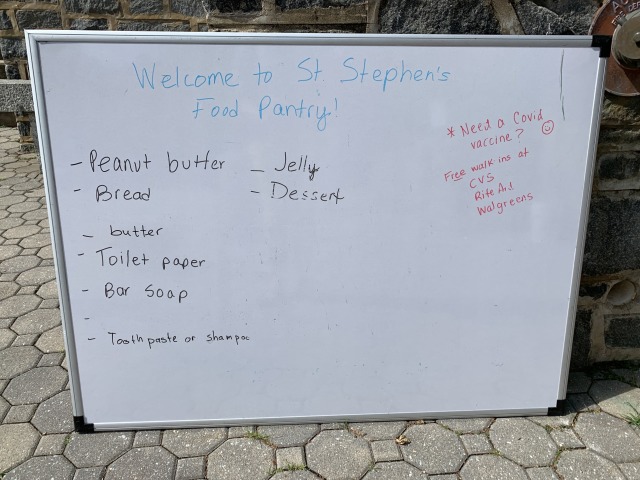 Welcome to St. Stephen's
Food Pantry!
- Peanut butter
- Bread
- butter
- Toilet paper
- Bar Soap
-
- Toothpaste or shampoo
- Jelly
- Dessert
* Need a Covid
vaccine? ☺
Free walk ins at
CVS
Rite Aid
Walgreens